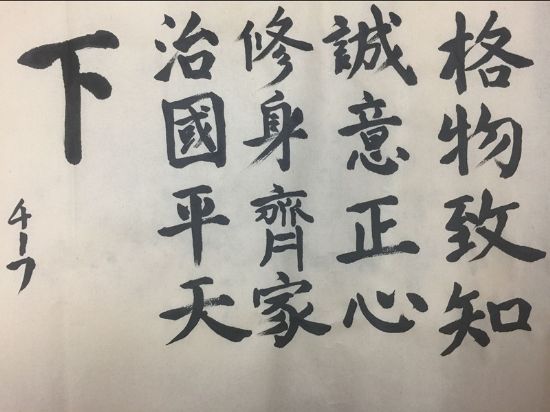 格物致知
誠意正心
修身齊家
治國平天
下
チーフ